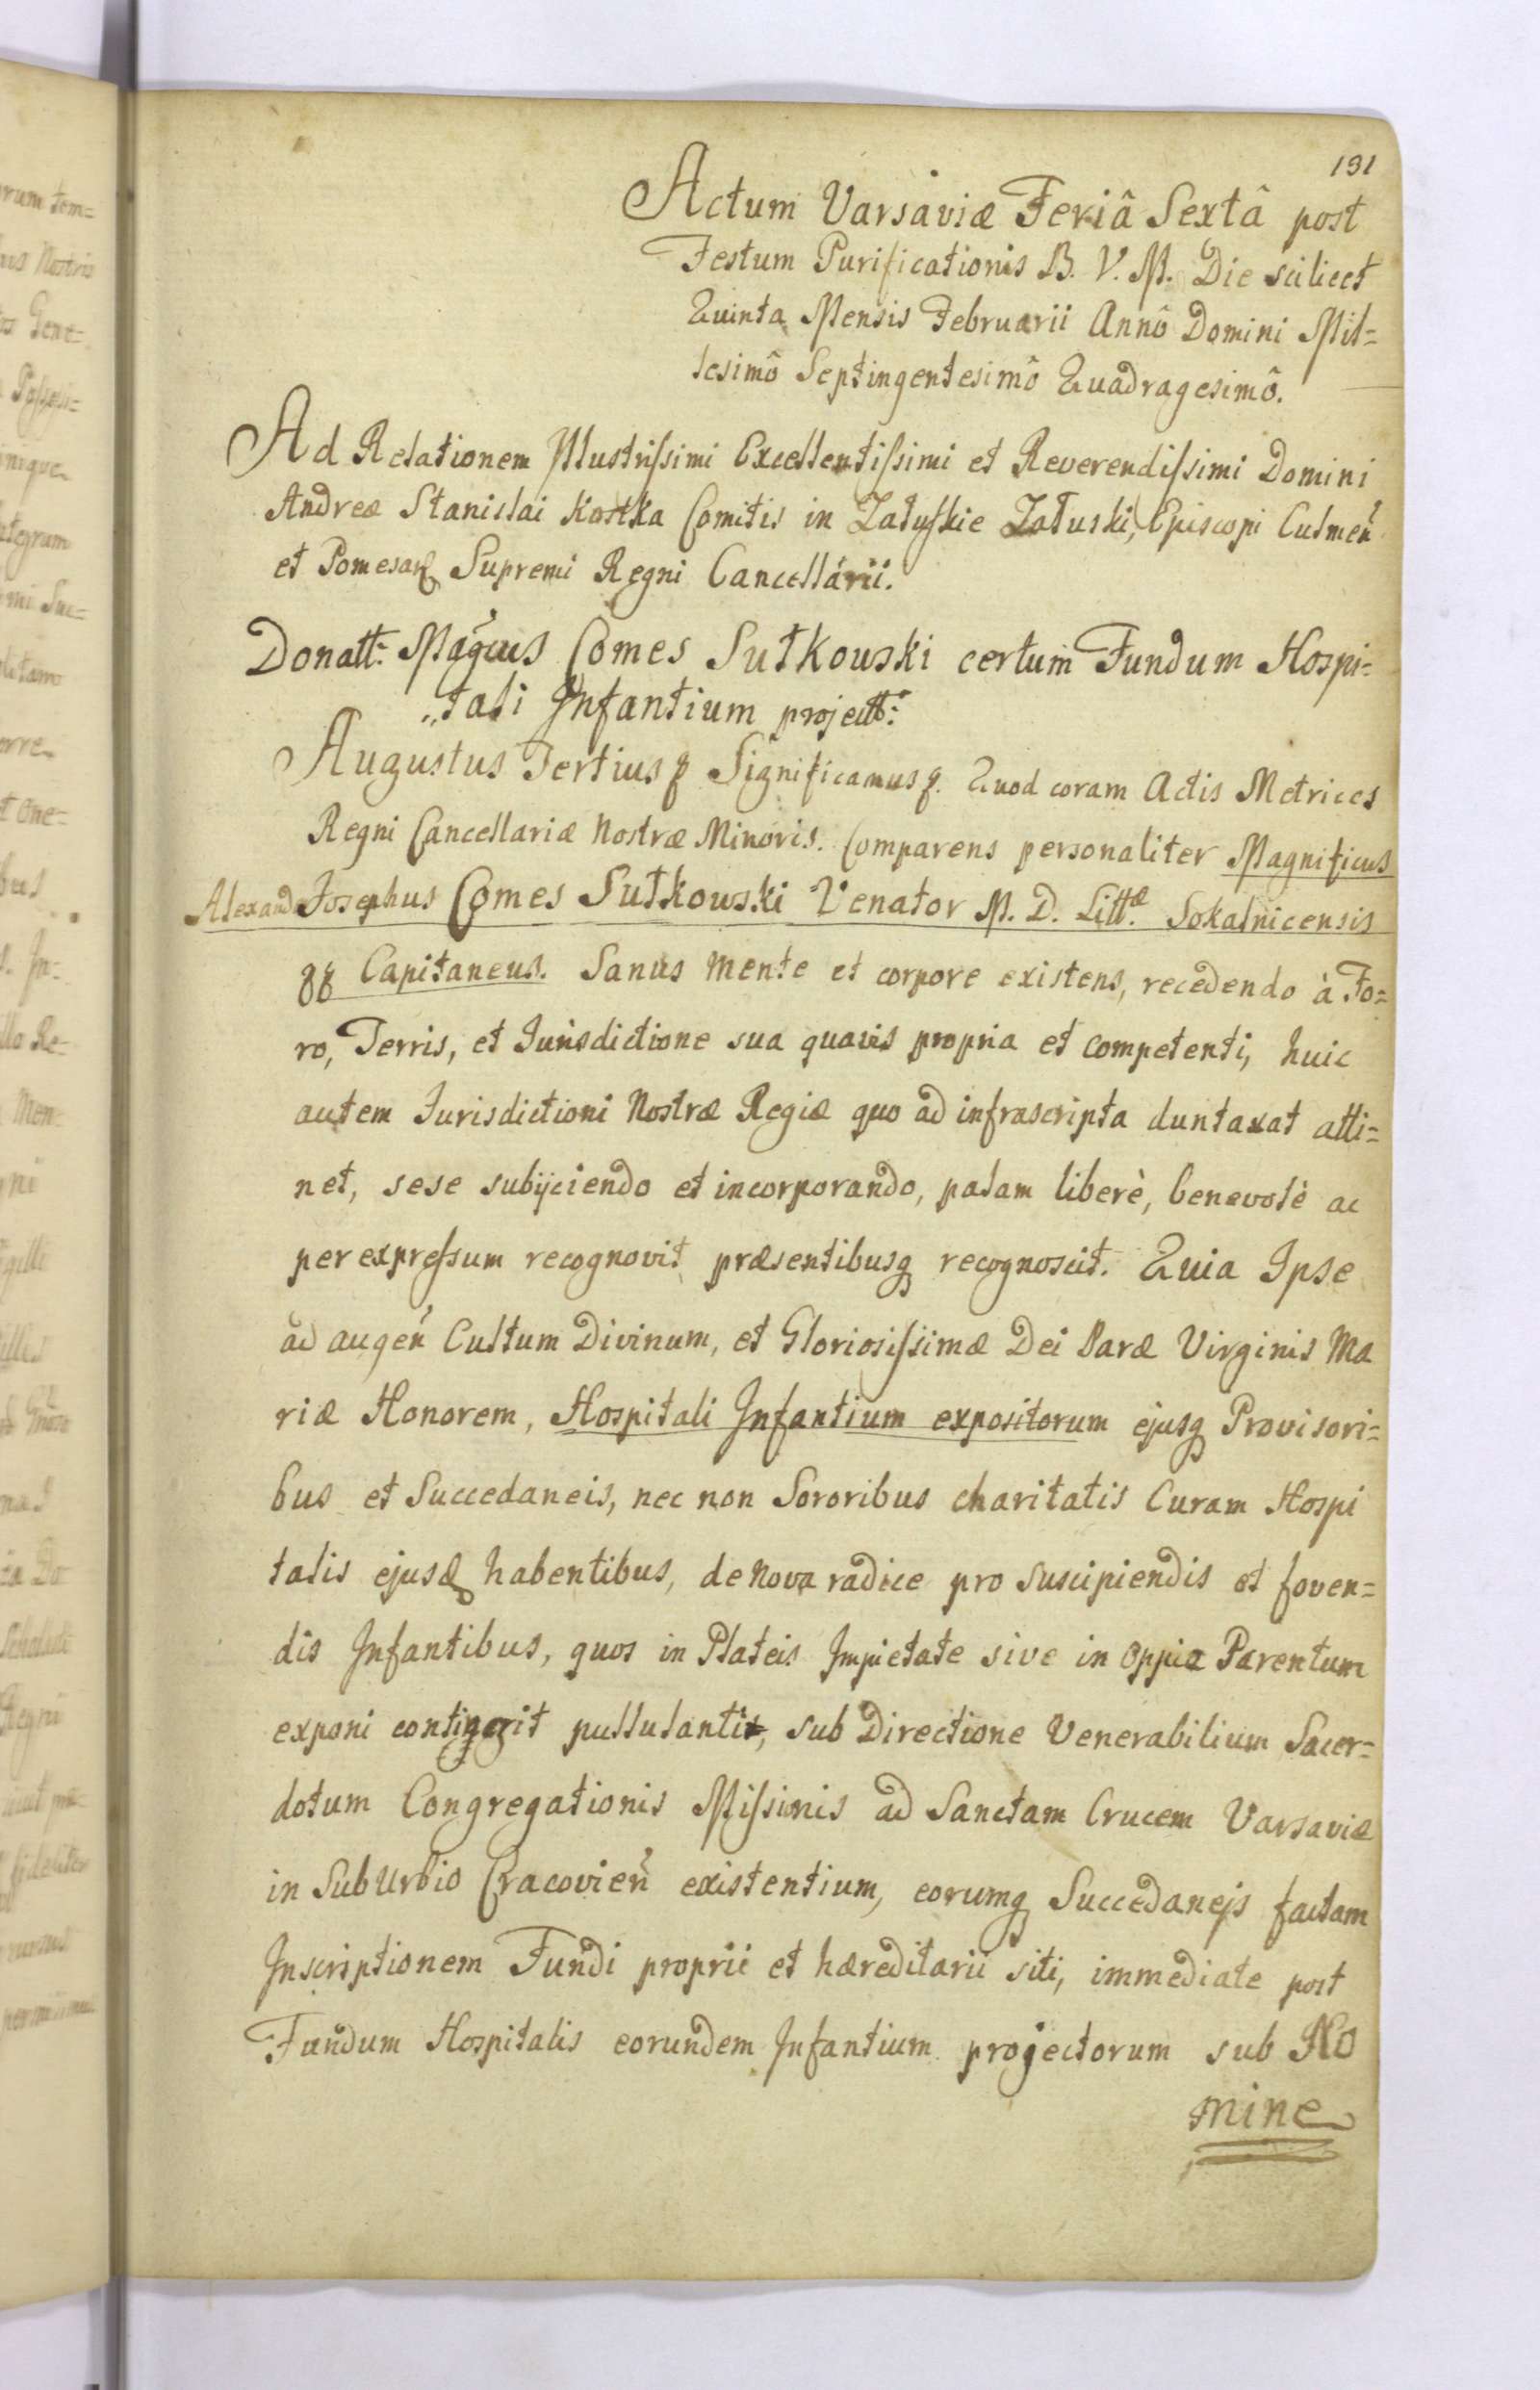 131
Actum Varsaviæ Feriâ Sextâ post
Festum Purificationis B. V. M. Die scilicet
Quinta Mensis Februarii Annô Domini Mil=
lesimô Septingentesimô Quadragesimô.
Ad Relationem Illustrissimi Excellentissimi et Reverendissimi Domini
Andreæ Stanislai Kostka Comitis in Załuskie Załuski, Episcopi Culmen̄
et Pomesan̄ Supremi Regni Cancellárii.
Donatt: Mag̃cus Comes Sułkowski certum Fundum Hospi=
„tali Infantium projectt:
Augustus Tertius p Significamus p. Quod coram Actis Metrices
Regni Cancellariæ Nostræ Minoris. Comparens personaliter Magnificus
Alexand Josephus Comes Sułkowski Venator M. D. Litt.æ Sokalnicensis
qq Capitaneus. Sanus mente et corpore existens, recedendo à Fo=
ro, Terris, et Jurisdictione sua quavis propria et competenti, huic
autem Jurisdictioni Nostræ Regiæ quo ad infrascripta duntaxat atti=
net, sese subijciendo et incorporando, palam liberè, benevolè ac
per expressum recognovit præsentibusq recognoscit. Quia Ipse
ad augen̄ Cultum Divinum, et Gloriosissimæ Dei Paræ Virginis Ma
riæ Honorem, Hospitali Infantium expositorum ejusq Provisori=
bus et Succedaneis, nec non Sororibus charitatis Curam Hospi
talis ejusd habentibus, de Nova radice pro suscipiendis et foven=
dis Infantibus, quos in Plateis Impietate sive inoppia Parentum
exponi contigerit pullulanti, sub Directione Venerabilium Sacer=
dotum Congregationis Missionis ad Sanctam Crucem Varsaviæ
in SubUrbio Cracovien̄ existentium, eorumq Succedanejs factam
Inscriptionem Fundi proprii et hæreditarii siti, immediate post
Fundum Hospitalis eorundem Infantium projectorum sub No
mine